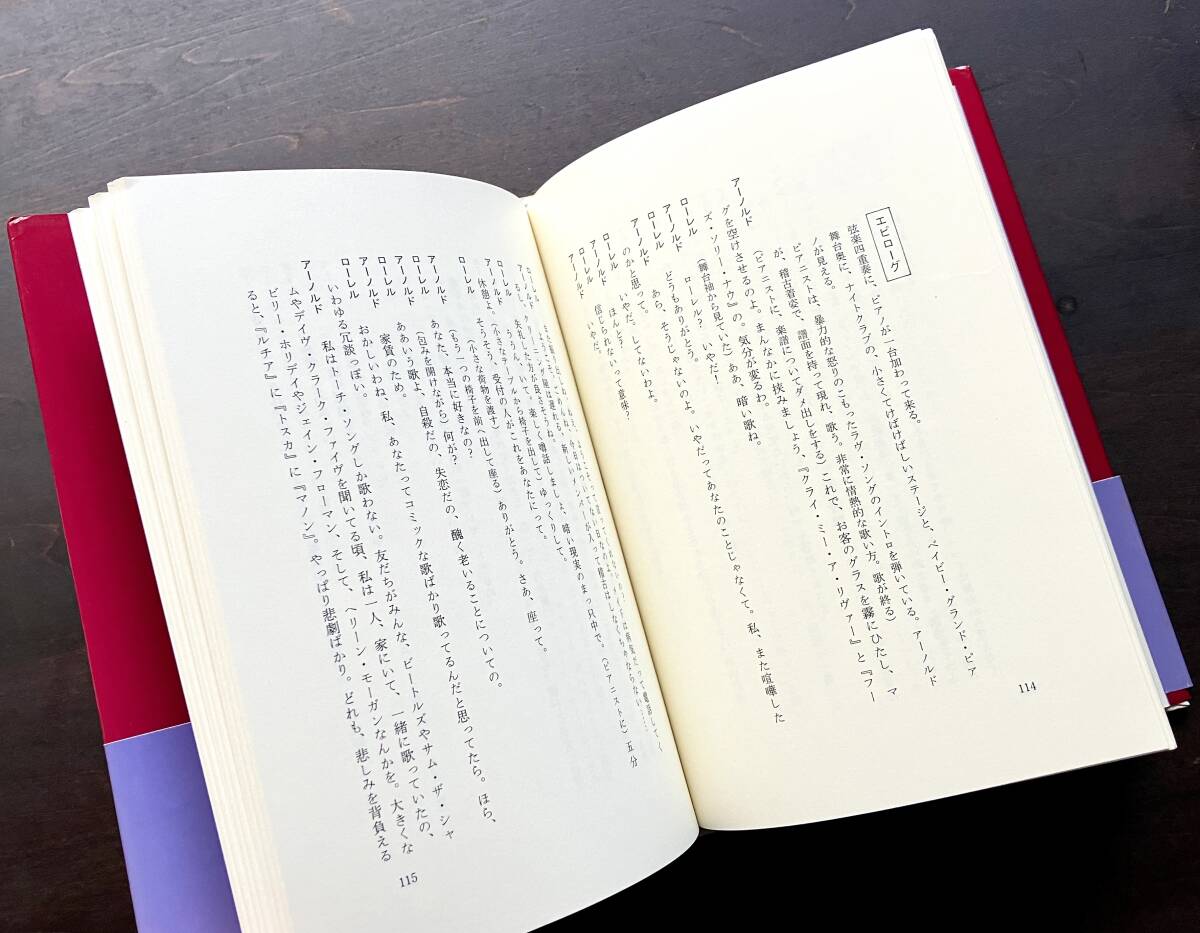 エピローグ
弦楽四重奏に、ピアノが一台加わって来る。
舞台奥に、ナイトクラブの、小さくてけばけばしいステージと、ベイビー・グランド・ピア
ノが見える。
ピアニストは、暴力的な怒りのこもったラヴ・ソングのイントロを弾いている。アーノルド
が、稽古着姿で、譜面を持って現れ、歌う。非常に情熱的な歌い方。歌が終る)
アーノルド (ピアニストに、楽譜についてダメ出しをする)これで、お客のグラスを霧にひたし、マ
グを空けさせるのよ。まんなかに挟みましょう、『クライ・ミー・ア・リヴァー』と『フー
ズ・ソリー・ナウ』の。気分が変るわ。
ローレル (舞台袖から見ていた)ああ、暗い歌ね。
アーノルド ローレル? いやだ!
ローレル どうもありがとう。
アーノルド あら、そうじゃないのよ。いやだってあなたのことじゃなくて。私、また喧嘩した
のかと思って。
ローレル いやだ。してないわよ。
アーノルド ほんと?
ローレル 信じられないって意味?
アーノルド いやだ。
114
ローレル
アーノルド
るし、
ローレル 失礼した方が良さそうね。
アーノルド ううん、いて。楽しく噂話しましょ、暗い現実のまっ只中で。(ピアニストに)五分
休憩よ。(小さなテーブルから椅子を出して)ゆっくりして。
ローレル そうそう、受付の人がこれをあなたにって。
(小さな荷物を渡す)
アーノルド (もう一つの椅子を前へ出して座る)ありがとう。さあ、座って。
ローレル あなた、本当に好きなの?
アーノルド (包みを開けながら)何が?
ローレル ああいう歌よ、自殺だの、失恋だの、醜く老いることについての。
アーノルド 家賃のため。
ローレル おかしいわね、私、あなたってコミックな歌ばかり歌ってるんだと思ってたら。ほら、
いわゆる冗談っぽい。
アーノルド 私はトーチ・ソングしか歌わない。友だちがみんな、ビートルズやサム・ザ・シャ
ムやデイヴ・クラーク・ファイヴを聞いてる頃、私は一人、家にいて、一緒に歌っていたの、
ビリー・ホリデイやジェイン・フローマン、そして、ヘリーン・モーガンなんかを。大きくな
ると、『ルチア』に『トスカ』に『マノン』。やっぱり悲劇ばかり。どれも、悲しみを背負える
115